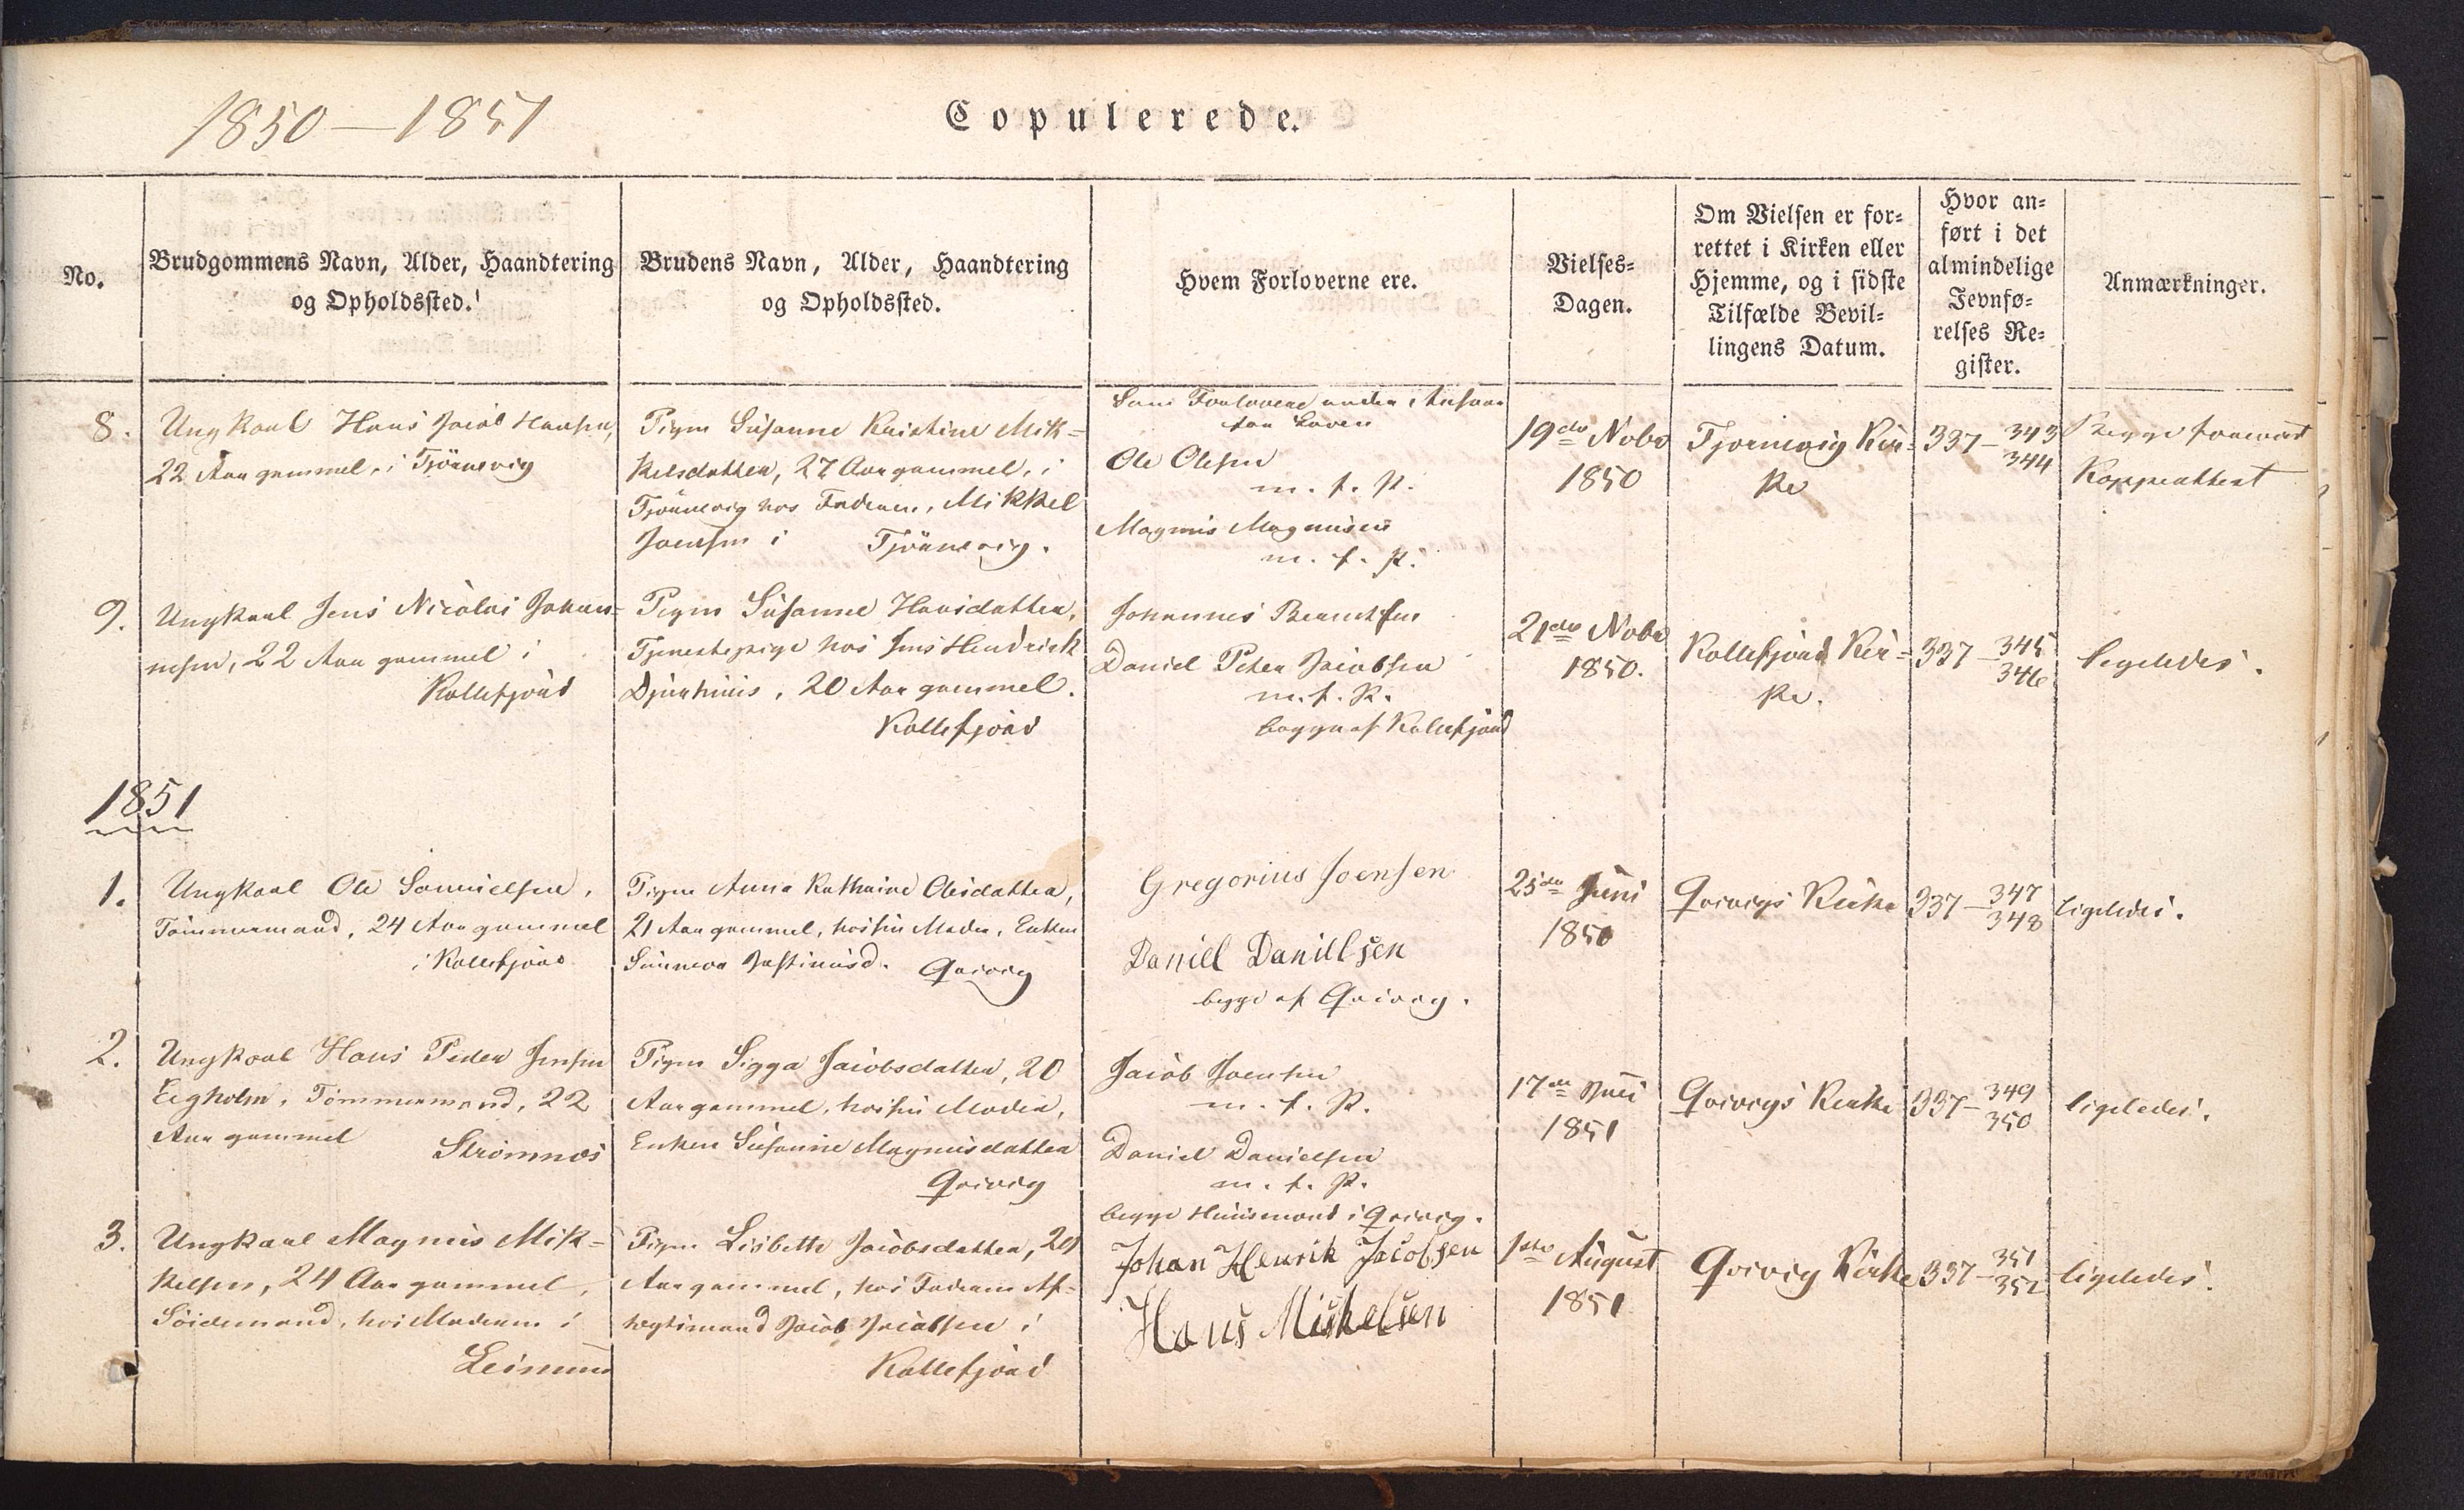 1850—1851
Copulerede.
No.
Brudgommens Navn, Alder, Haandtering
og Opholdssted.
Brudens Navn, Alder, Haandtering
og Opholdssted.
Hvem Forloverne ere.
Vielses-
Dagen.
Om Vielsen er for-
rettet i Kirken eller
Hjemme, og i sidste
Tilfælde Bevil-
lingens Datum.
Hvor an-
ført i det
almindelige
Jevnfø-
relses Re-
gister.
Anmærkninger.
8.
Ungkarl Hans Jacob Hansen,
22 Aar gammel, i Tjörnevig
Pigen Susanne Kristine Mik-
kelsdatter, 27 Aar gammel, i
Tjörnevig hos Faderen, Mikkel
Joensen i Tjörnevig.
Som Forlovere under Ansvar
for Loven
Ole Olesen
m. f. P.
Magnus Magnusen
m. f. P.
19de Nobr
1850
Tjörnevig Kir-
ke
337—343
344
Begge forevist
Koppeattest
9.
Ungkarl Jens Nicolai Johan-
nesen, 22 Aar gammel i
Kollefjord
Pigen Susanne Hansdatter,
Tjenestepige hos Jens Hendrick
Djurhuus, 20 Aar gammel.
Kollefjord
Johannes
Daniel Peter Jacobsen
m. f. P.
begge af Kollefjord
21de Nobr
1850.
Kollefjord Kir-
ke.
337—345
346
ligeledes.
1851
1.
Ungkarl Ole Samuelsen,
Tömmermand, 24 Aar gammel
i Kollefjord
Pigen Anna Kathrine Olesdatter,
21 Aar gammel, hos sin Moder, Enken
Sunneva Justinusd. Qvivig
Gregorius Joensen
Daniel Daniellsen
begge af Qvivig.
25de Juni
1850
Qvivigs Kirke
337—347
348
ligeledes.
2.
Ungkarl Hans Peder Jensen
Eigholm, Tömmermand, 22
Aar gammel
Strömnæs
Pigen Sigga Jacobsdatter, 20
Aar gammel, hos sin Moder,
Enken Susanne Magnusdatter
Qvivig
Jacob Joensen
m. f. P.
Daniel Danielsen
m. f. P.
begge Huusmænd i Qvivig.
17de Juli
1851
Qvivigs Kirke
337—349
350
ligeledes.
3.
Ungkarl Magnus Mik-
kelsen, 24 Aar gammel,
hos Moderen i
Leinum
Pigen Lisbette Jacobsdatter, 20
Aar gammel, hos Faderen Af-
tægtsmand Jacob Jacobsen i
Kollefjord
Johan Henrik Jacobsen
Hans Mickelsen
1ste August
1851
Qvivig Kirke
337—351
352
ligeledes.